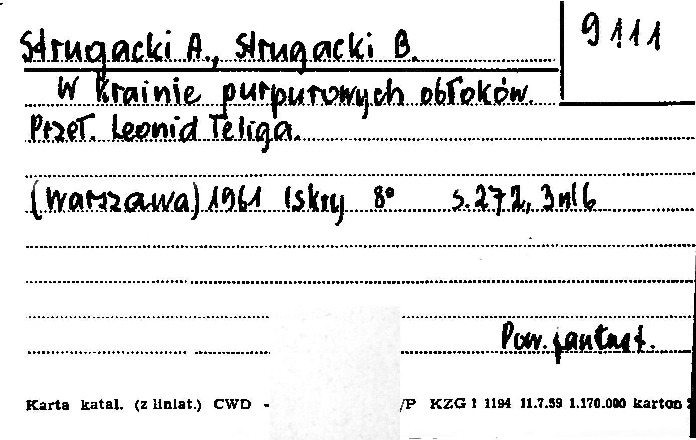 Strugacki A., Strugacki B.
9111
W krainie purpurowych obłoków.
Przeł. Leonid Teliga.
(Warszawa) 1961 Iskry 8° s. 272, 3 nlb
Pow. fantast.
Karta katal. (z liniat.) CWD - /P KZG 1 1194 11.7.59 1.170.000 karton